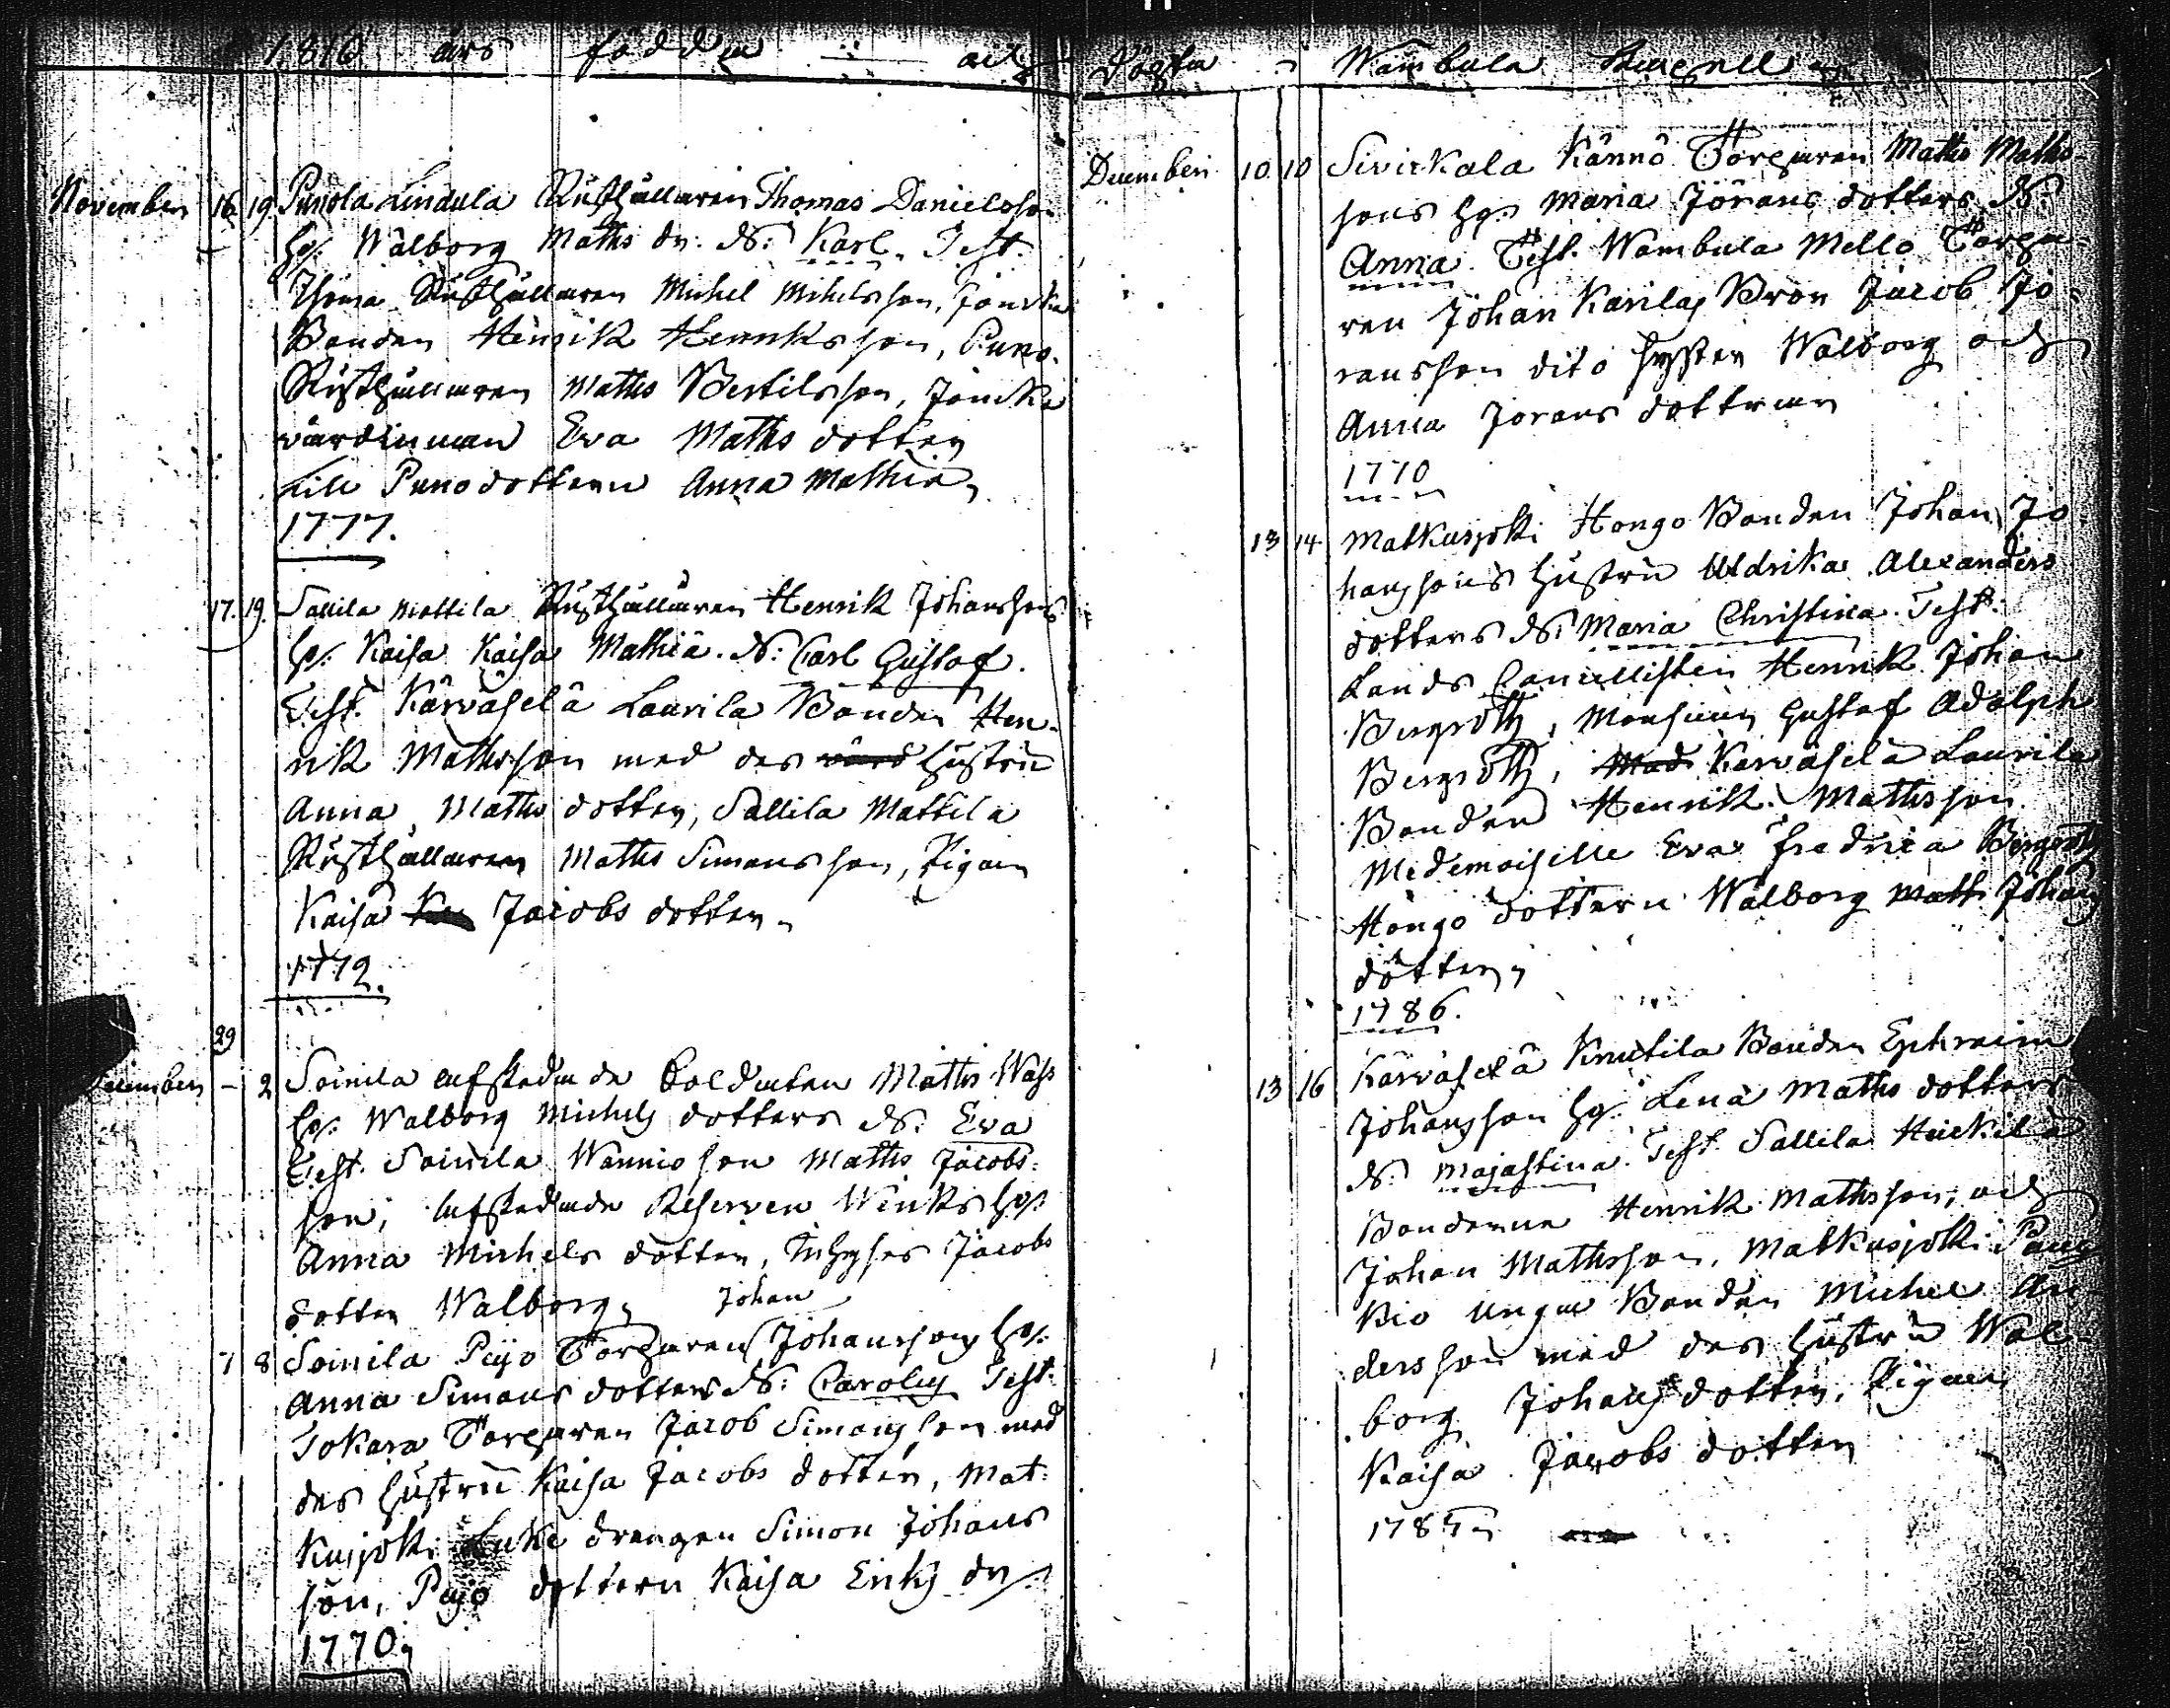 1816 års födde och
November 16 19 Punola Lindula Rusthållaren Thomas Danielsson
hs. Walborg Maths dr. db: Karl. Test.
Rusthållaren Michel Mihelsson,
Bonden Henrik Henriksson, Puno
Rusthållaren Matts Bertilsson,
wärdinnan Eva Matts dotter
Lill Puno dottern Anna Mathiæ,
1777.
17. 19. Sallila Mattila Rusthållaren Henrik Johanssons
hs. Kaisa Kaisa Mathiä. db: Carl Gustaf.
Test. Kärväselä Laurila Bonden Hen-
rik Mathsson med des wärd hustru
Anna Matts dotter, Sallila Mattila
Rusthållaren Matts Simonsson, Pigan
Kaisa Jacobs dotter.
1772.
29
December - 2 Soinila afskedade Soldaten Matts Wass
hs. Walborg Michels dotters db: Eva
Test. Soinila Wännio son Matts Jacobs-
son, afskedade Reserven Winks hs.
Anna Michels dotter, Inhyses Jacobs
dotter Walborg,
Johan
7 8 Soinila Pajo Torparen Johanssons hs.
Anna Simons dotters db: Carolus Test.
Tokara Torparen Jacob Simonsson med
des hustru Kaisa Jacobs dotter, Mat-
kusjoki Luke drengen Simon Johans
son, Pajo dottern Kaisa Eriks dr
1770,
Döpta i Wambula Capell
December 10 10 Sivikkala Kännö Torparen Matts Matts-
sons hs. Maria Jörans dotters db:
Anna. Test. Wambula Mello Torpa-
ren Johan Karilas Bron Jacob Jö-
ransson dito syster Walborg och
Anna Jorans döttrar
1770
13 14 Matkusjoki Hongo Bonden Johan Jo
hanssons hustru Uldrika Alexanders
dotters db: Maria Christina. Test.
Lands Cancellisten Henrik Johan
Bergroth, Monsieur Gustaf Adolph
Bergroth, Mad. Karväselä Laurila
Bonden Henrik Mathsson
Medemoiselle Eva Fredrica Bergroth
Hongo dottern Walborg Matt Johans
dotter,
1786.
13 16 Kärväselä Knutila Bonden Ephraim
Johansson hs. Lena Matts dotters
db. Majastina. Test. Sallila Heickilä
Bönderne Henrik Mathsson, och
Johan Mathsson, Matkusjoki Pan
kio unga Bonden Michel An-
dersson med des hustru Wal-
borg Johans dotter, Pigan
Kaisa Jacobs dotter
1787,